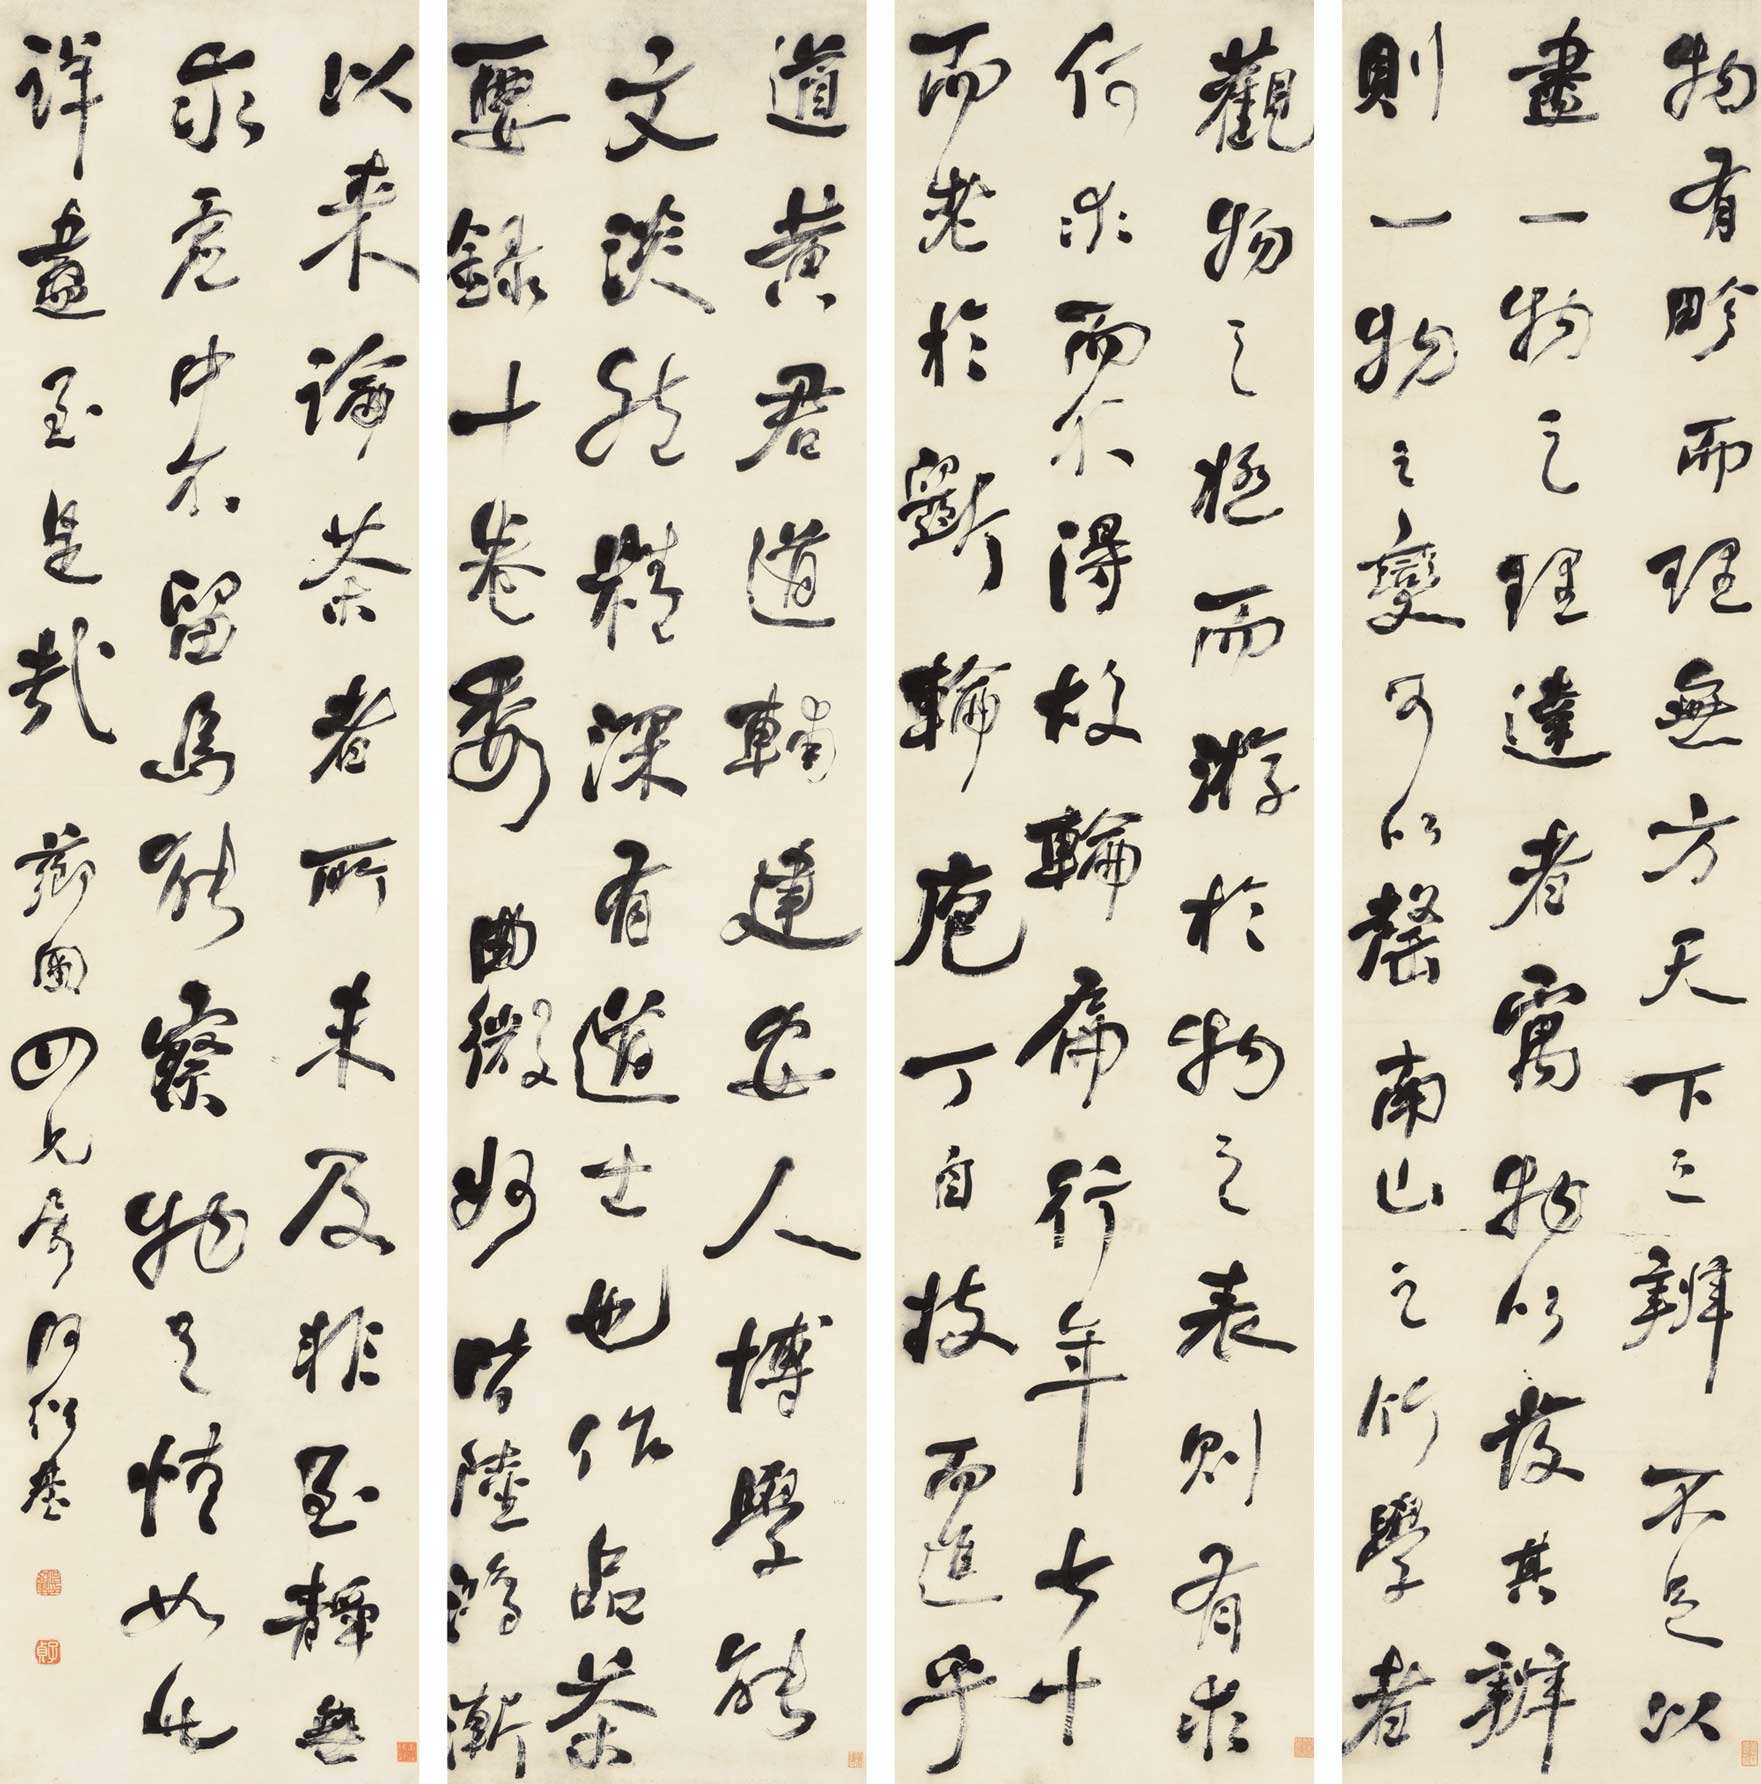 物有畛而理無方天下之辨不足以
盡一物之理達者寓物以發其辨
則一物之變可以罄南山之竹學者
觀物之極而游於物之表則有求
何求而不得故輪扁行年七十
而老於斲輪庖丁自技而進乎
道黃君道輔建安人博學能
文淡然精深有道士也作品茶
要錄十卷委曲微妙皆陸鴻漸
以来論茶者所未及非至靜無
求虛中不留烏能察物之情如此
詳盡至是哉 四兄屬 何紹基
子貞